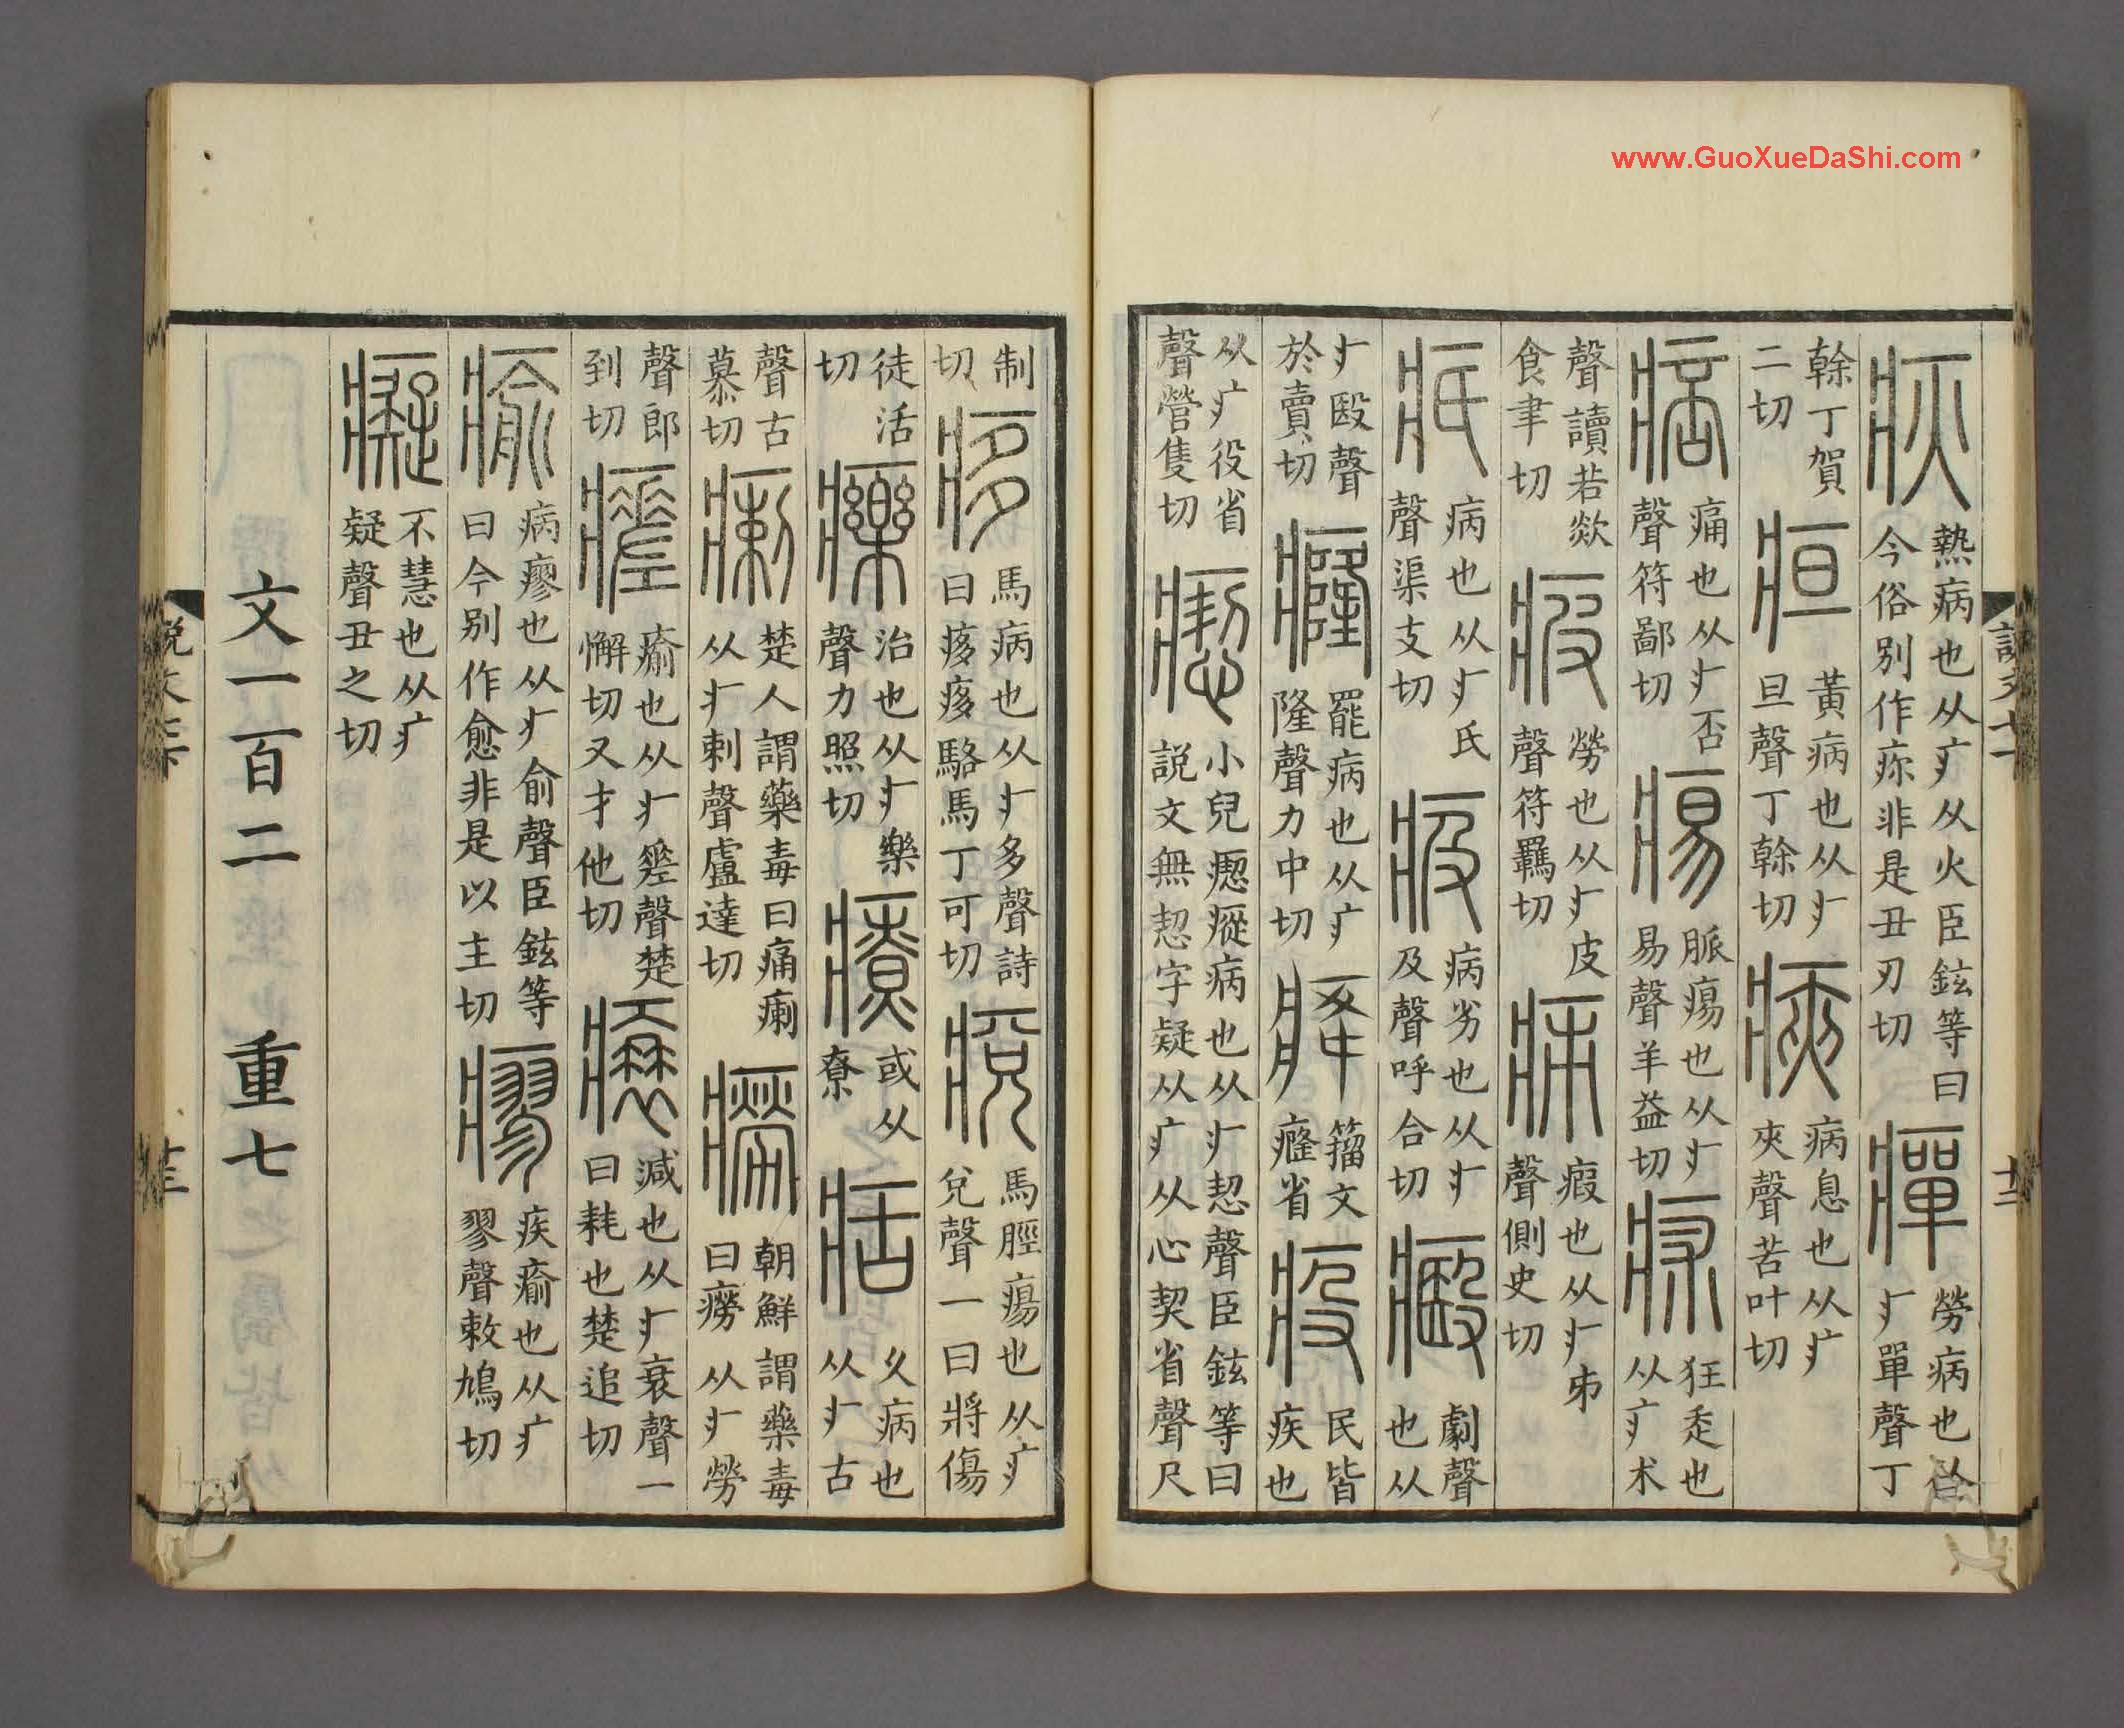 疢熱病也从疒从火臣鉉等曰今俗別作疹非是丑刃切癉勞病也从疒單聲丁
榦丁賀二切疸黃病也从疒旦聲丁榦切㾜病息也从疒夾聲苦叶切
痞痛也从疒否聲符鄙切㾖脈瘍也从疒易聲羊益切㽸狂走也从疒术
聲讀若欻食聿切疲勞也从疒皮聲符羈切㾊瑕也从疒𠂔聲側史切
疧病也从疒氏聲渠支切㽺病劣也从疒及聲呼合切劇聲也从
疒殹聲於賣切癃罷病也从疒隆聲力中切籒文癃省疫民皆疾也
从疒役省聲營隻切瘛小兒瘛瘲病也从疒恝聲臣鉉等曰說文無恝字疑从疒从心契省聲尺
制切㾋馬病也从疒多聲詩曰㾋㾋駱馬丁可切痥馬脛瘍也从疒兌聲一曰將傷
徒活切𤻲治也从疒樂聲力照切療或从尞㽽久病也从疒古
聲古慕切瘌楚人謂藥毒曰痛瘌从疒剌聲盧達切癆朝鮮謂藥毒曰癆从疒勞
聲郎到切瘥瘉也从疒𦍒聲楚懈切又才他切𤸬減也从疒衰聲一曰耗也楚追切
瘉病瘳也从疒俞聲臣鉉等曰今別作愈非是以主切瘳疾瘉也从疒翏聲敕鳩切
癡不慧也从疒疑聲丑之切
文一百二 重七
說文七下
十三
www.GuoXueDaShi.com